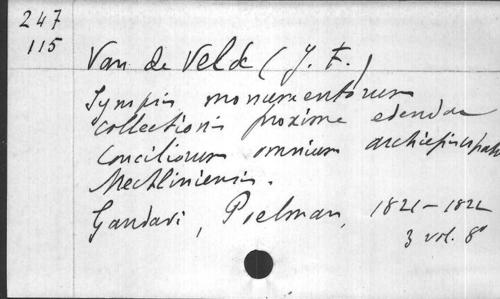 247
115
Van de Velde (J. F.)
Synopsis monumentorum
collectionis proxime edendae
Conciliorum omnium archiepiscopatus
Mechliniensis.
Gandavi, Poelman, 1821-1822
3 vol. 8°